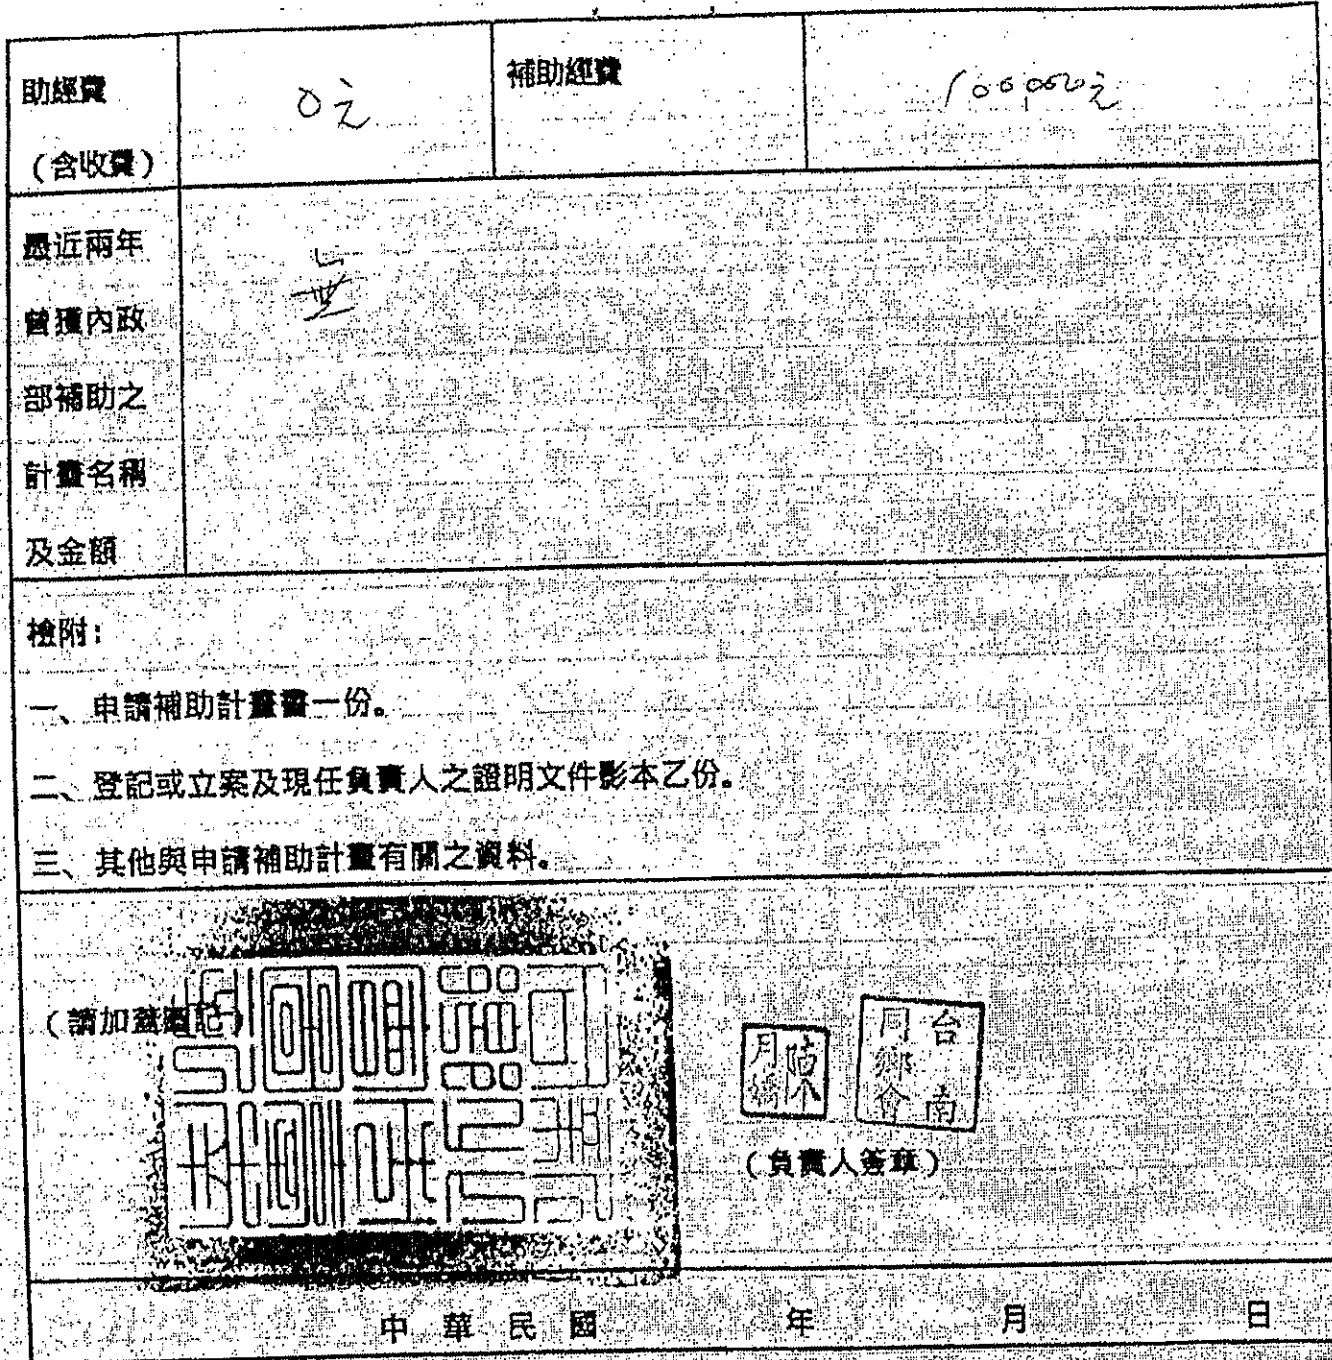 助經費
（含收費）
0元
補助經費
100,000元
最近兩年
曾獲內政
部補助之
計畫名稱
及金額
無
檢附：
一、申請補助計畫書一份。
二、登記或立案及現任負責人之證明文件影本乙份。
三、其他與申請補助計畫有關之資料。
（請加蓋圖記）
台南
同鄉會
（負責人簽章）
中華民國 年 月 日